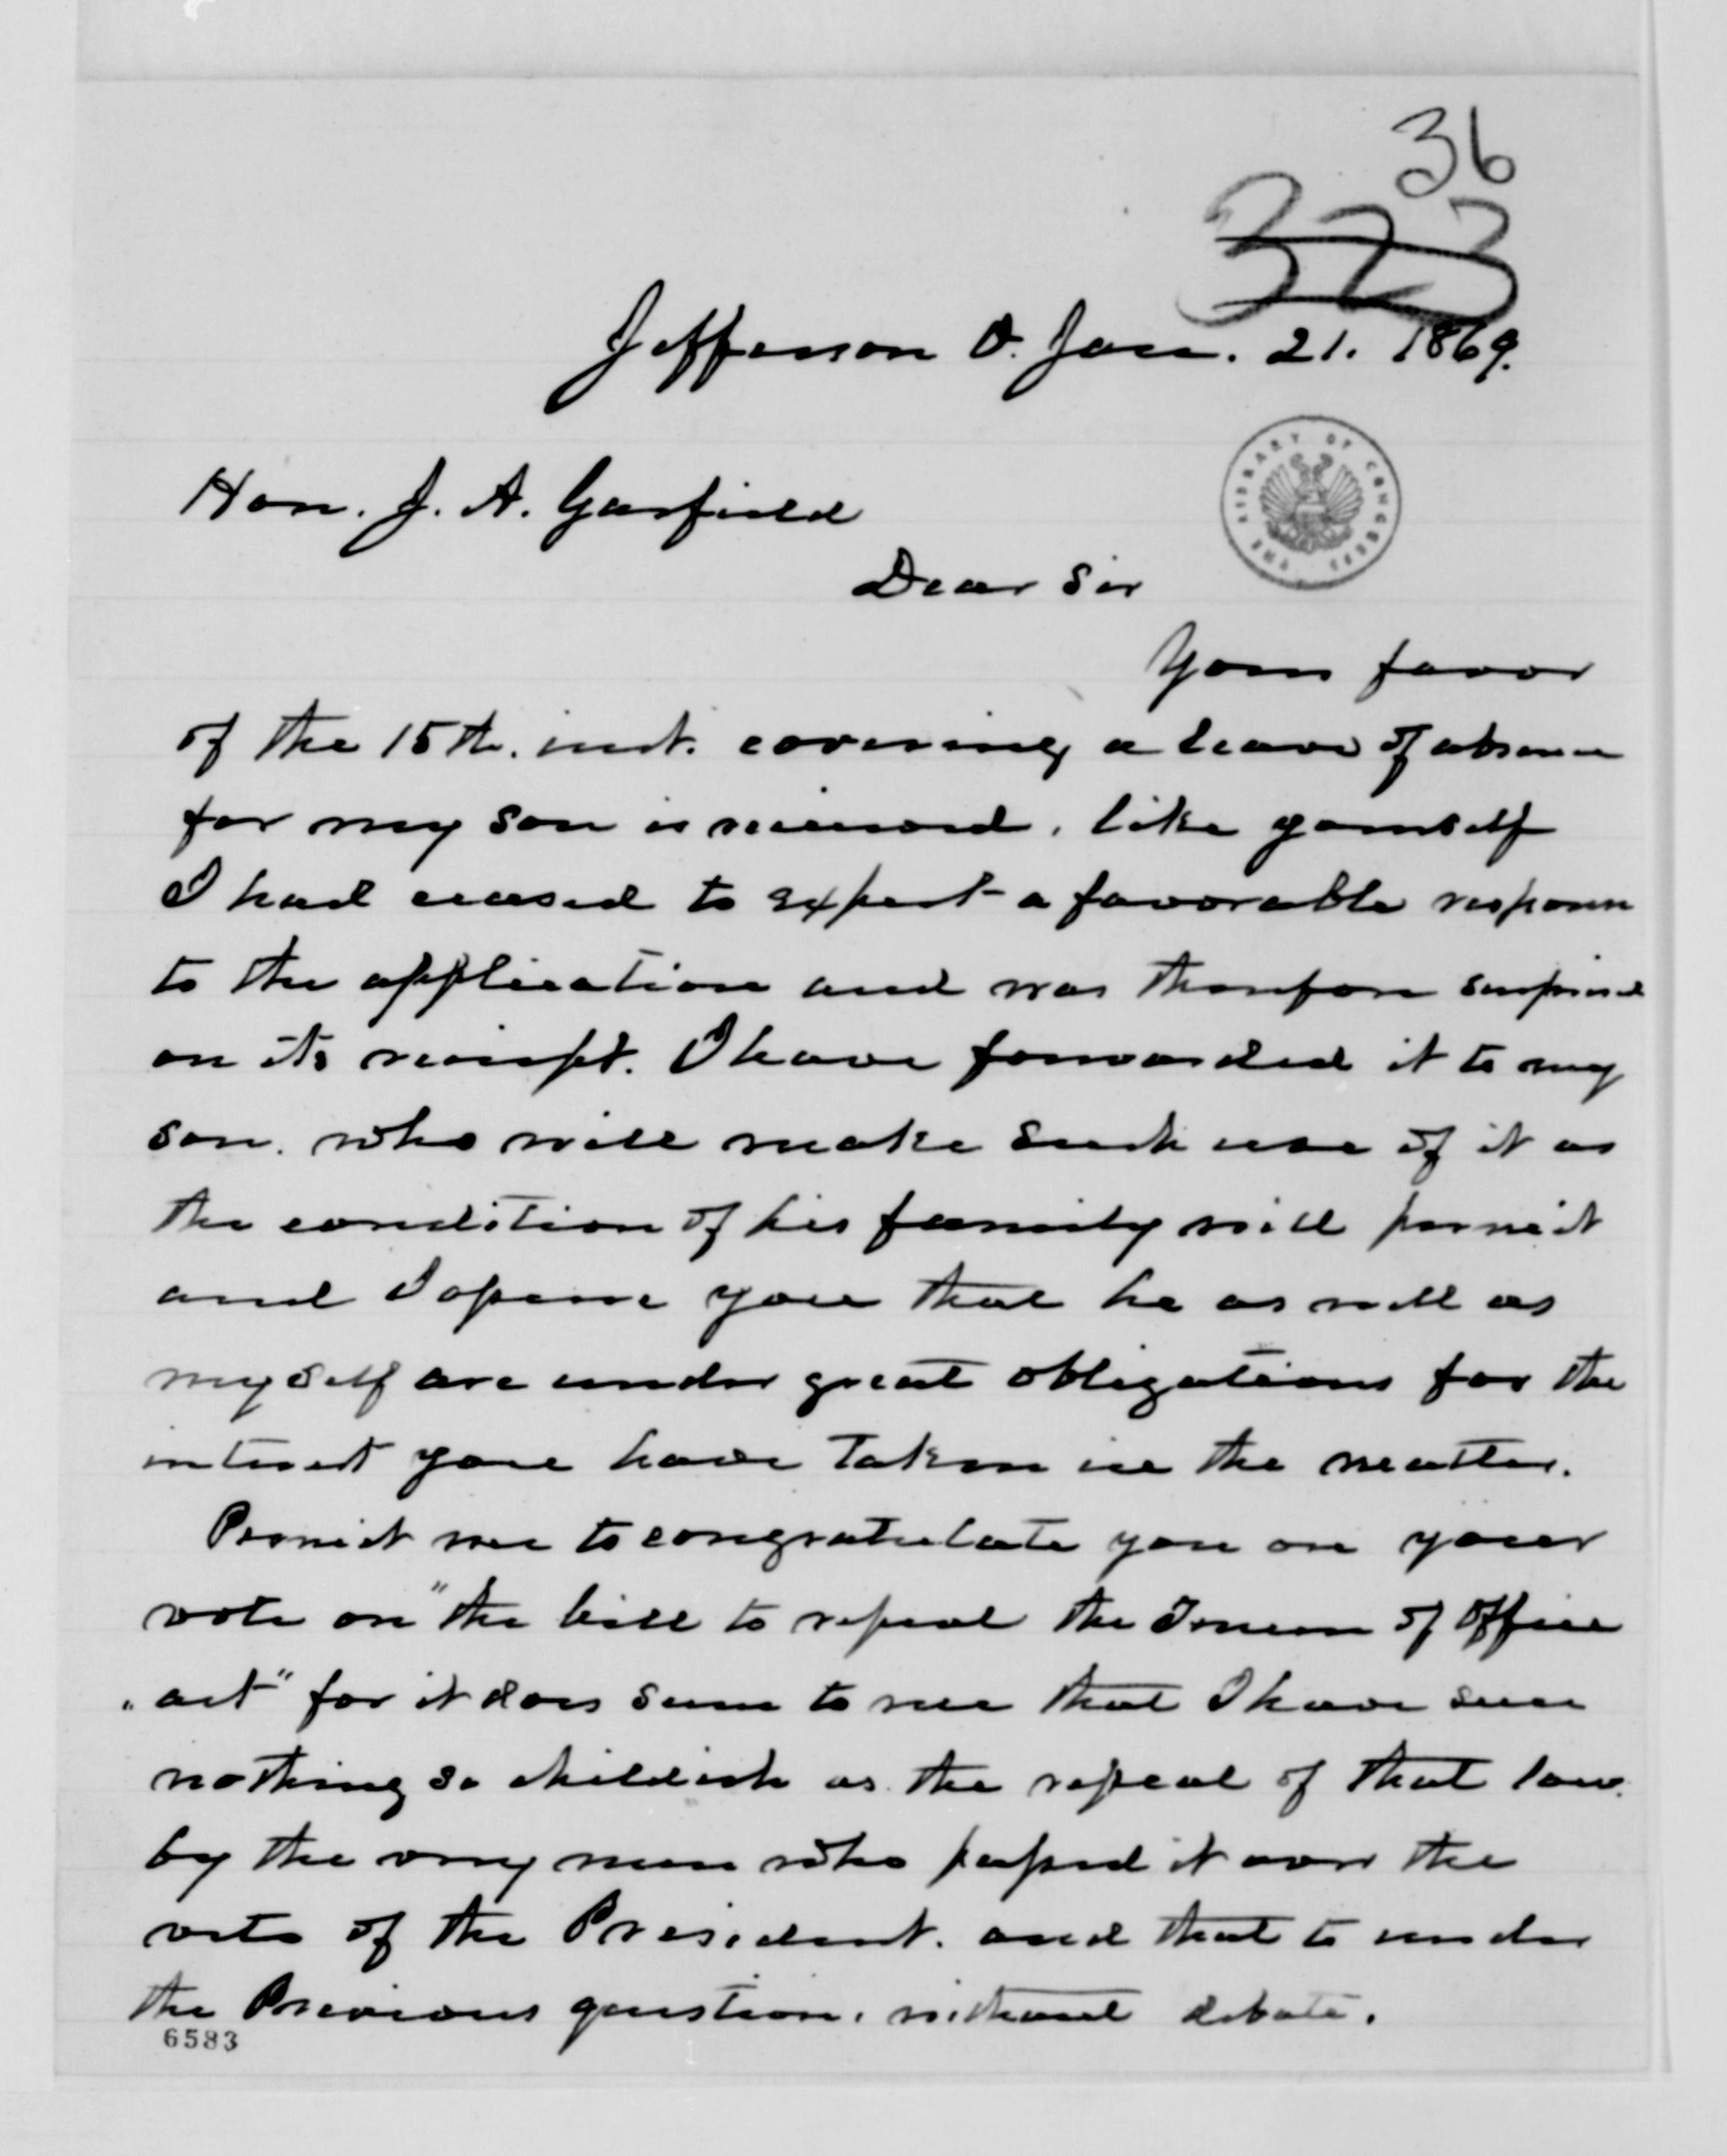 36
323
Jefferson O. Jan. 21. 1869.
THE LIBRARY OF CONGRESS
Hon. J. A. Garfield
Dear Sir
Your favor
of the 15th. inst. covering a leave of absence
for my son is received, like yourself
I had ceased to expect a favorable response
to the application and was therefore surprised
on its receipt. I have forwarded it to my
son. who will make such use of it as
the condition of his family will permit
and I assure you that he as well as
myself are under great obligations for the
interest you have taken in the matter.
Permit me to congratulate you on your
vote on "the bill to repeal the Tenure of Office
"act" for it does seem to me that I have seen
nothing so childish as the repeal of that law.
by the very men who passed it over the
veto of the President. and that to under
the Previous question, without debate.
6583